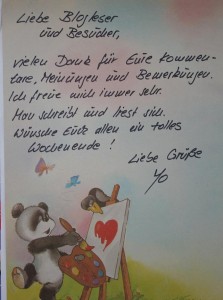 Liebe Blogleser
und Besucher,
vielen Dank für Eure Kommen-
tare, Meinungen und Bemerkungen.
Ich freue mich immer sehr.
Man schreibt und liest sich.
Wünsche Euch allen ein tolles
Wochenende!
Liebe Grüße
Yo